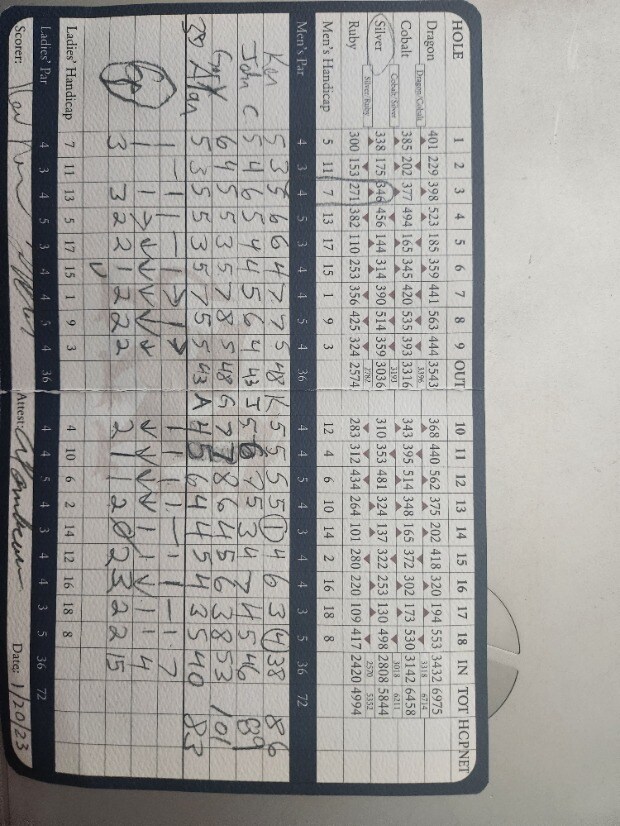 HOLE 1 2 3 4 5 6 7 8 9 OUT 10 11 12 13 14 15 16 17 18 IN TOT HCP NET
Dragon 401 229 398 523 185 359 441 563 444 3543 368 440 562 375 202 418 320 194 553 3432 6975
Dragon/Cobalt 3396 3318 6714
Cobalt 385 202 377 494 165 345 420 535 393 3316 343 395 514 348 165 372 302 173 530 3142 6458
Cobalt/Silver 3193 3018 6211
Silver 338 175 346 456 144 314 390 514 359 3036 310 353 481 324 137 322 253 130 498 2808 5844
Silver/Ruby 2782 2570 5352
Ruby 300 153 271 382 110 253 356 425 324 2574 283 312 434 264 101 280 220 109 417 2420 4994
Men's Handicap 5 11 7 13 17 15 1 9 3 12 4 6 10 14 2 16 18 8
Men's Par 4 3 4 5 3 4 4 5 4 36 4 4 5 4 3 4 4 3 5 36 72
Ken 5 3 5 6 6 4 7 7 5 48 K 5 5 5 5 1 4 6 3 4 38 86
John C 5 4 6 5 4 4 5 6 4 43 J 5 6 7 5 3 4 7 4 5 46 89
6 4 5 5 3 5 7 8 5 48 G 7 7 8 6 4 5 6 3 8 53 101
Alan 5 3 5 5 3 5 7 5 5 43 A 4 5 6 4 4 5 4 3 5 40 83
7
4
3 3 2 2 1 2 2 2 2 1 1 2 2 3 2 2 15
Ladies' Handicap 7 11 13 5 17 15 1 9 3 4 10 6 2 14 12 16 18 8
Ladies' Par 4 3 4 5 3 4 4 5 4 36 4 4 5 4 3 4 4 3 5 36 72
Scorer: Attest: Date: 1/20/23